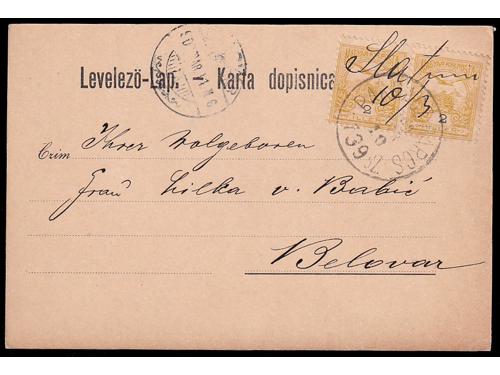 Levelező-Lap. Karta dopisnica
10/3
2 2
Czim Ihrer Wolgeboren
Frau Milka v. Babić
Belovar